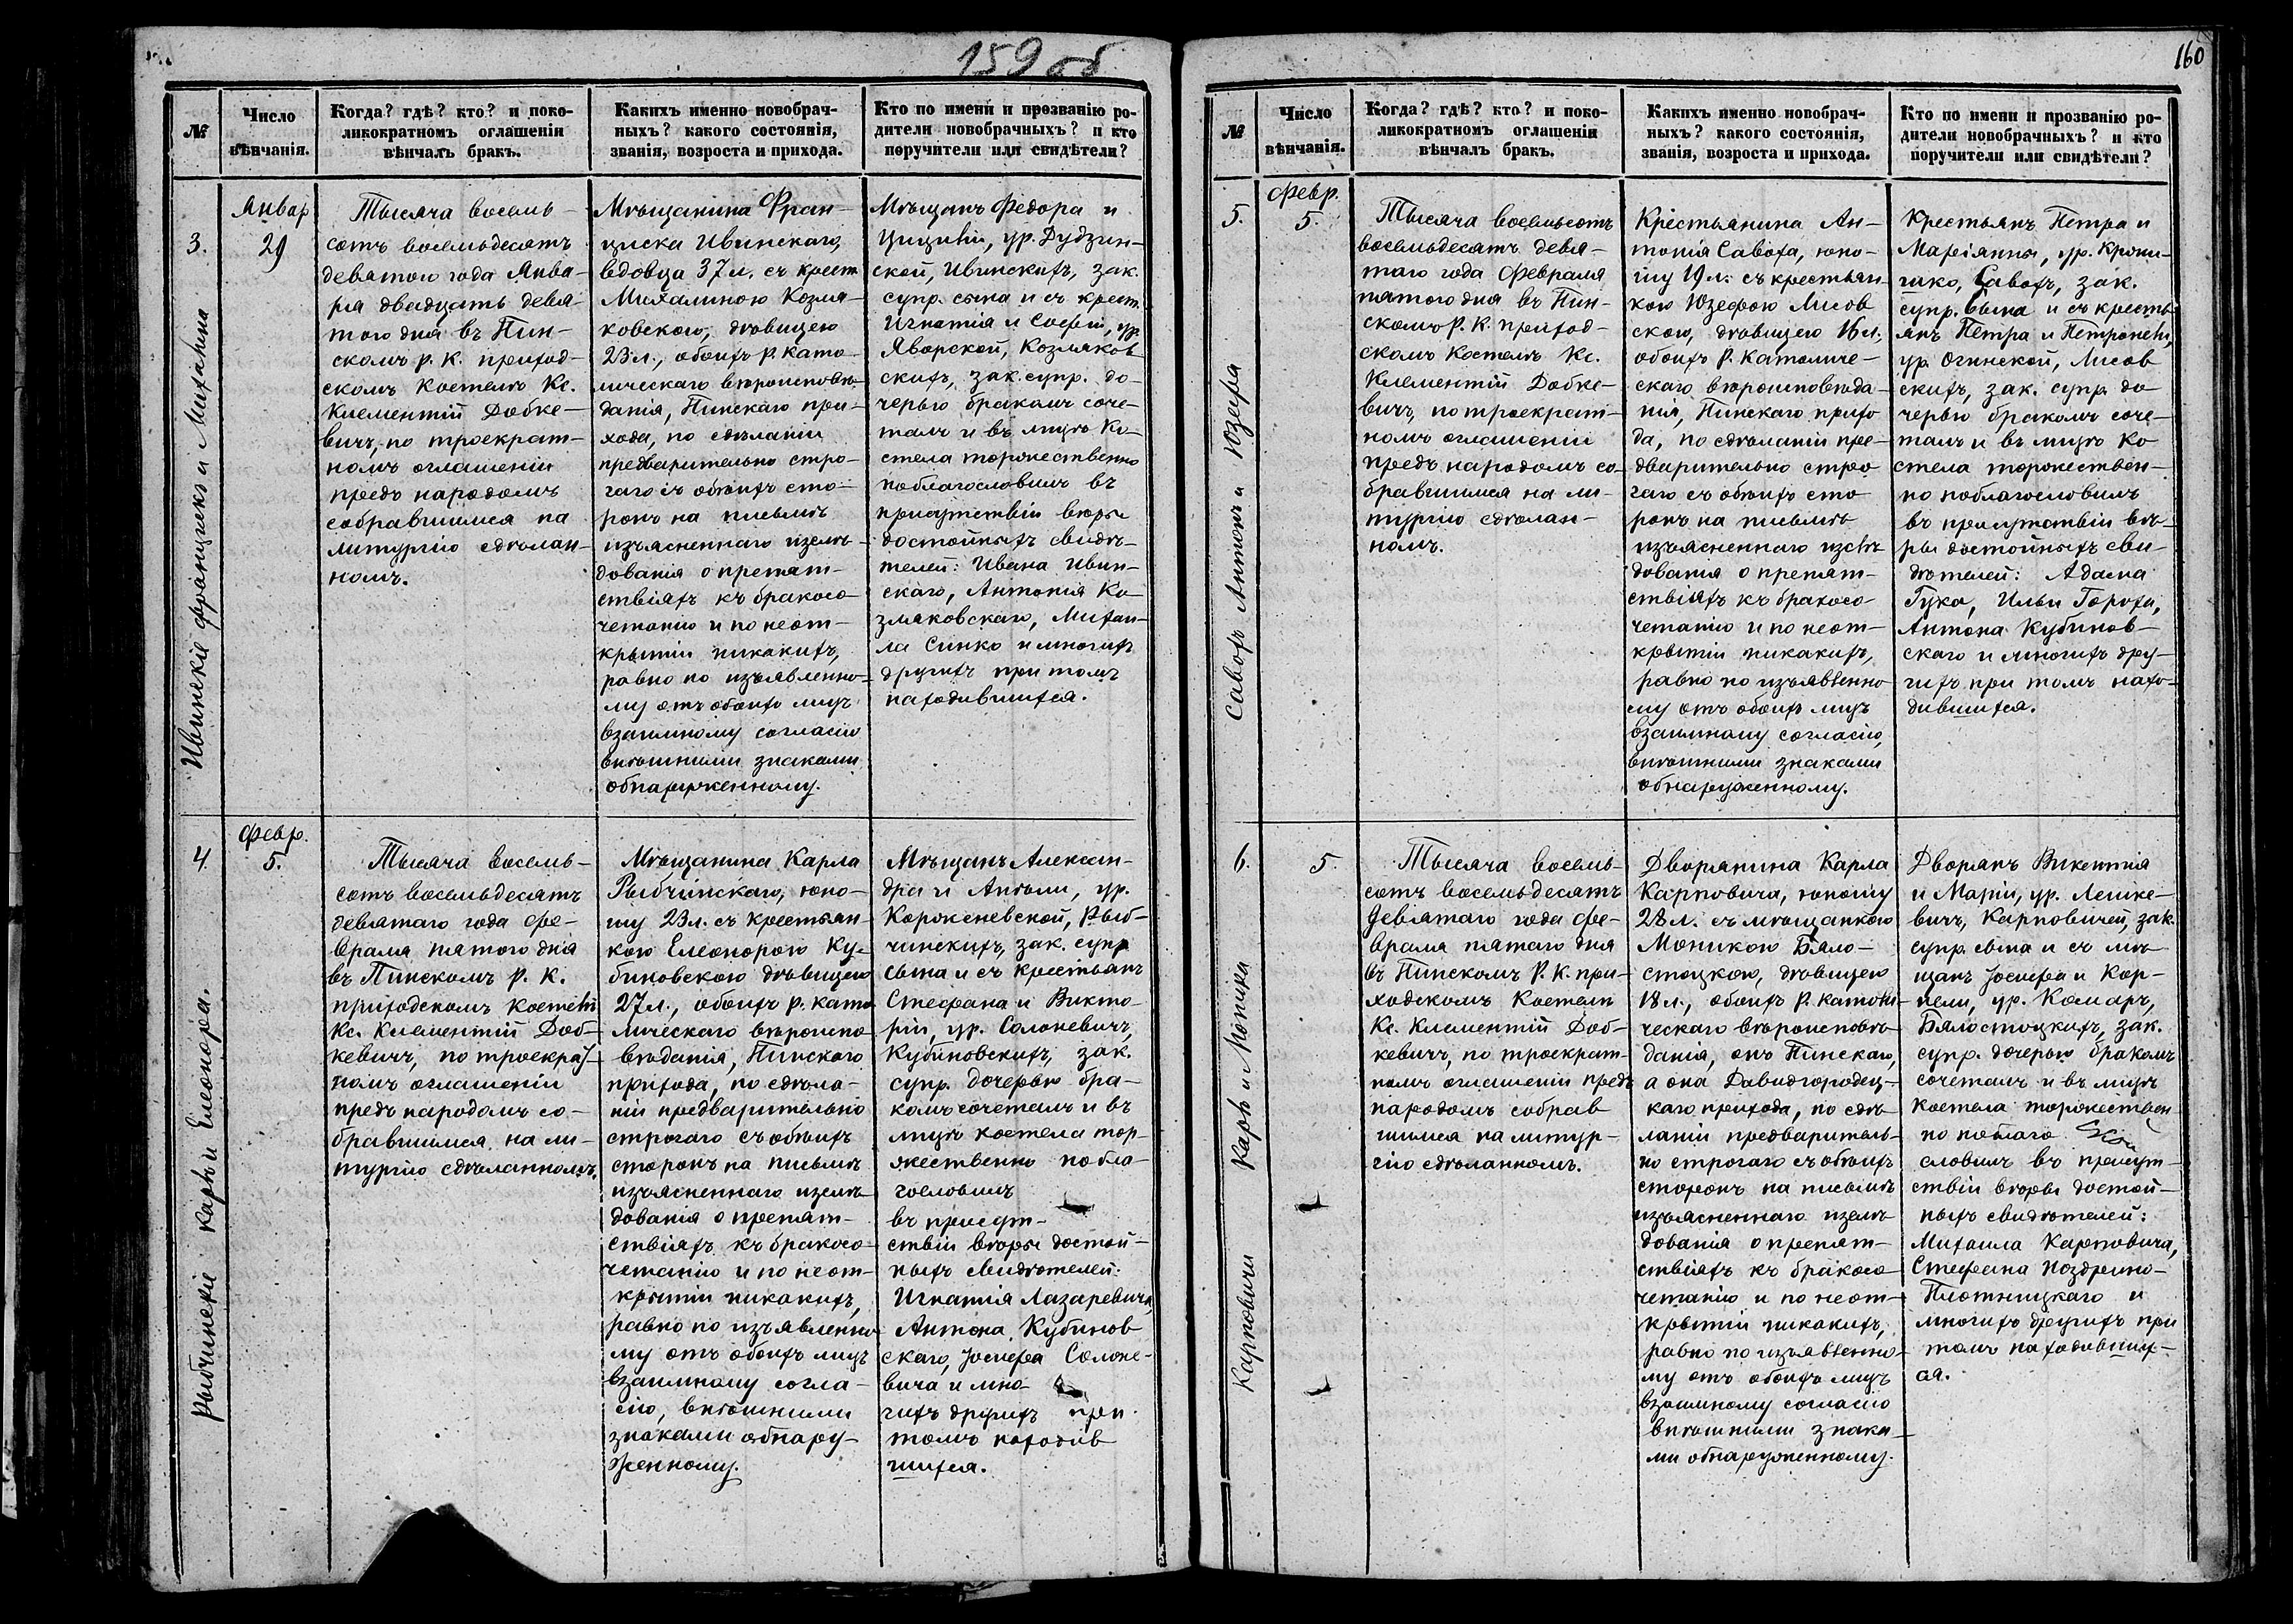 159 об
№
Число
вѣнчанія.
Когда? гдѣ? кто? и поко-
ликократномъ оглашеніи
вѣнчалъ бракъ.
Какихъ именно новобрач-
ныхъ? какого состоянія,
званія, возроста и прихода.
Кто по имени и прозванію ро-
дители новобрачныхъ? и кто
поручители или свидѣтели?
3.
Ивинскіе Францискъ и Михалина
Январ
29
Тысяча восемь-
сотъ восемьдесятъ
девятого года Янва-
ря двадцать девя-
того дня въ Пин-
скомъ р. к. приход-
скомъ костелѣ Кс.
Клементій Добке-
вичъ, по троекрат-
номъ оглашеніи
предъ народомъ
собравшимся на
литургію сдѣлан-
номъ.
Мѣщанина Фран-
циска Ивинскаго,
вдовца 37 л. съ крест.
Михалиною Козля-
ковскою, дѣвицею
23 л., обоихъ р. като-
лическаго вѣроисповѣ-
данія, Пинскаго при-
хода, по сдѣланіи
предварительно стро-
гаго съ обѣихъ сто-
ронъ на письмѣ
изъясненнаго изслѣ-
дованія о препят-
ствіяхъ къ бракосо-
четанію и по неот-
крытіи никакихъ,
равно по изъявленно-
му отъ обоихъ лицъ
взаимному согласію
внѣшними знаками
обнаруженному.
Мѣщанъ Федора и
Цициліи, ур. Дудзин-
ской, Ивинскихъ, зак.
супр. сына и съ крест.
Игнатія и Софіи, ур.
Яворской, Козляков
скихъ, зак. супр. до-
черью бракомъ соче-
талъ и въ лицѣ Ко-
стела торжественно
поблагословилъ въ
присутствіи вѣры
достойныхъ свидѣ-
телей: Ивана Ивин-
скаго, Антонія Ко-
зляковскаго, Михаи-
ла Синко и многихъ
другихъ при томъ
находившихся.
4.
Рыбчинскіе Карлъ и Елеонора.
Февр.
5.
Тысяча восемь-
сотъ восемьдесятъ
девятаго года фе-
враля пятого дня
въ Пинскомъ Р. К.
приходскомъ костелѣ
Кс. Клементій Доб-
кевичъ, по троекрат-
номъ оглашеніи
предъ народомъ со-
бравшимся на ли-
тургію сдѣланномъ.
Мѣщанина Карла
Рыбчинскаго, юно-
шу 23 л. съ крестьян-
кою Елеонорою Ку-
биновскою дѣвицею
27 л., обоихъ р. като
лическаго вѣроиспо-
вѣданія, Пинскаго
прихода, по сдѣла-
ніи предварительно
строгаго съ обѣихъ
сторонъ на письмѣ
изъясненнаго изслѣ-
дованія о препят-
ствіяхъ къ бракосо-
четанію и по неот-
крытіи никакихъ,
равно по изъявленно-
му отъ обоихъ лицъ
взаимному согла-
сію, внѣшними
знаками обнару-
женному.
Мѣщанъ Алексан-
дра и Анѣли, ур.
Короженевской, Рыб-
чинскихъ, зак. супр
сына и съ крестьянъ
Стефана и Викто-
ріи, ур. Солоневичъ,
Кубиновскихъ, зак.
супр. дочерью бра-
комъ сочеталъ и въ
лицѣ костела тор-
жественно побла-
гословилъ
въ присут-
ствіи вѣры достой-
ныхъ свидѣтелей:
Игнатія Лазаревича,
Антона Кубинов
скаго, Іосифа Солоне-
вича и мно-
гихъ другихъ при
томъ находив
шихся.
160
№
Число
вѣнчанія.
Когда? гдѣ? кто? и поко-
ликократномъ оглашеніи
вѣнчалъ бракъ.
Какихъ именно новобрач-
ныхъ? какого состоянія,
званія, возроста и прихода.
Кто по имени и прозванію ро-
дители новобрачныхъ? и кто
поручители или свидѣтели?
5.
Савохъ Антонъ и Юзефа
Февр.
5.
Тысяча восемьсотъ
восемьдесятъ девя-
таго года Февраля
пятого дня въ Пин-
скомъ Р. К. приход-
скомъ костелѣ Кс.
Клементій Добке-
вичъ, по троекрат-
номъ оглашеніи
предъ народомъ со-
бравшимся на ли-
тургію сдѣлан-
номъ.
Крестьянина Ан-
тонія Савоха, юно-
шу 19 л. съ крестьян-
кою Юзефою Лисов
скою, дѣвицею 16 л.,
обоихъ Р. католиче-
скаго вѣроисповѣда-
нія, Пинскаго прихо
да, по сдѣланіи пре-
дварительно стро
гаго съ обѣихъ сто
ронъ на письмѣ
изъясненнаго изслѣ
дованія о препят-
ствіяхъ къ бракосо-
четанію и по неот-
крытіи никакихъ,
равно по изъявленно
му отъ обоихъ лицъ
взаимному согласію,
внѣшними знаками
обнаруженному.
Крестьянъ Петра и
Маріанны, ур.
Савохъ, зак.
супр. сына и съ кресть
янъ Петра и Петронели,
ур. Огинской, Лисов
скихъ, зак. супр. до
черью бракомъ соче-
талъ и въ лицѣ Ко
стела торжествен-
но поблагословилъ
въ присутствіи вѣ-
ры достойныхъ сви-
дѣтелей: Адама
Гука, Ильи Гороха,
Антона Кубинов-
скаго и многихъ дру-
гихъ при томъ нахо-
дившихся.
6.
Карповичи Карлъ и Моника
5.
Тысяча восемь-
сотъ восемьдесятъ
девятаго года фе-
враля пятаго дня
въ Пинскомъ Р. К. при-
ходскомъ костелѣ
Кс. Клементій Доб-
кевичъ, по троекрат-
номъ оглашеніи предъ
народомъ собрав
шимся на литур-
гію сдѣланномъ.
Дворянина Карла
Карповича, юношу
28 л. съ мѣщанкою
Моникою Бяло-
стоцкою, дѣвицею
18 л., обоихъ р. католи-
ческаго вѣроисповѣ-
данія, онъ Пинскаго,
а она Давидгородец-
каго прихода, по сдѣ-
ланіи предваритель-
но строгаго съ обѣихъ
сторонъ на письмѣ
изъясненнаго изслѣ-
дованія о препят-
ствіяхъ къ бракосо-
четанію и по неот-
крытіи никакихъ,
равно по изъявленно-
му отъ обоихъ лицъ
взаимному согласію
внѣшними знака-
ми обнаруженному.
Дворянъ Викентія
и Маріи, ур. Лешке-
вичъ, Карповичей, зак.
супр. сына и съ мѣ-
щанъ Іосифа и Кор-
нели, ур. Комаръ,
Бялостоцкихъ, зак.
супр. дочерью бракомъ
сочеталъ и въ лицѣ
костела торжествен
но поблаго
словилъ въ присут-
ствіи вѣры достой-
ныхъ свидѣтелей:
Михаила Карповича,
Стефана
Плотницкаго и
многихъ другихъ при
томъ находивших-
ся.